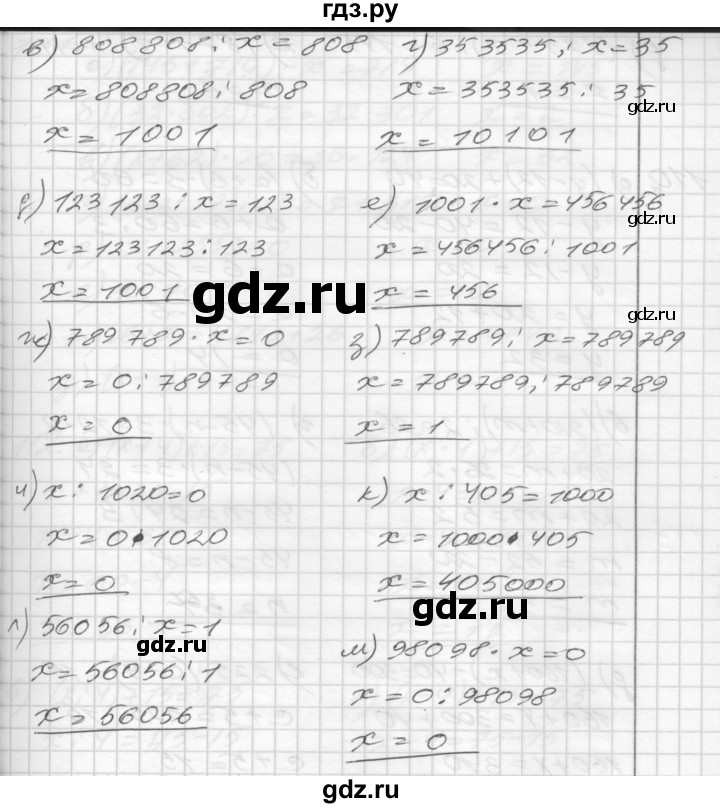 гдз.ру
в) 808 808 : x = 808
x = 808808 : 808
x = 1001
г) 353535 : x = 35
x = 353535 : 35
gdz.ru
x = 10101
д) 123 123 : x = 123
x = 123123 : 123
x = 1001
е) 1001 · x = 456 456
x = 456456 : 1001
x = 456
gdz.ru
gdz.ru
ж) 789 789 · x = 0
x = 0 : 789789
x = 0
з) 789789 : x = 789789
x = 789789 : 789789
x = 1
и) x : 1020 = 0
x = 0 · 1020
x = 0
к) x : 405 = 1000
x = 1000 · 405
x = 405000
gdz.ru
л) 56056 : x = 1
gdz.ru
x = 56056 : 1
x = 56056
м) 98098 · x = 0
x = 0 : 98098
x = 0
gdz.ru
gdz.ru